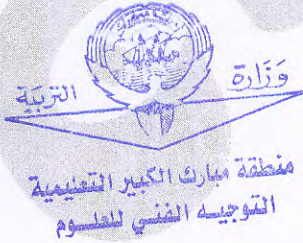 وزارة التربية
منطقة مبارك الكبير التعليمية
التوجيه الفني للعلوم